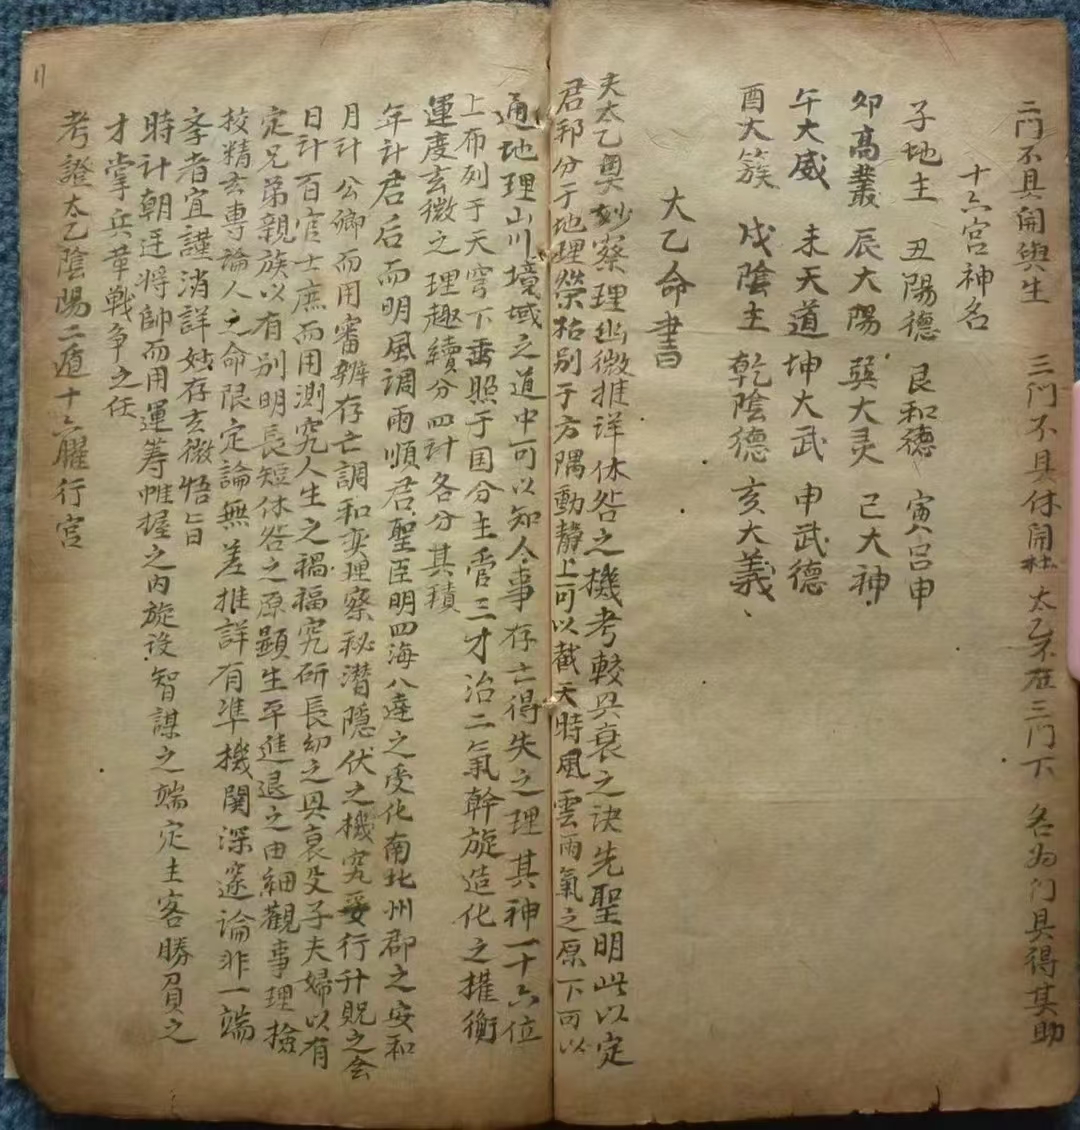 二門不具開與生　三門不具休開杜　太乙不在三門下　各為門具得其助
十六宮神名
子地主　丑陽德　艮和德　寅呂申
卯高叢　辰大陽　巽大灵　己大神
午大威　未天道　坤大武　申武德
酉大簇　戌陰主　乾陰德　亥大義
大乙命書
夫太乙奧妙察理幽微推详休咎之機考較興衰之决先聖明此以定
君邦分于地理榮枯别于方隅動静上可以截天時風雲雨氣之原下可以
通地理山川境域之道中可以知人事存亡得失之理其神一十六位
上布列于天穹下垂照于国分主管三才治二氣幹旋造化之權衡
運度玄微之理趣續分四計各分其積
年計君后而明風調雨順君聖臣明四海八達之受化南北州郡之安和
月計公卿而用審辨存亡調和爕理察秘潜隱伏之機究妥行升貺之会
日計百官士庶而用測究人生之禍福究斫長幼之興衰父子夫婦以有
定兄弟親族以有别明長短休咎之原顯生平進退之由細觀事理撿
校精玄專論人之命限定論無差推詳有準機関深邃論非一端
孝者宜謹消詳妙存玄微悟旨
時計朝廷將帥而用運筹帷握之内旋设智謀之端定主客勝負之
才掌兵革戰争之任
考證太乙陰陽二遁十六臞行宫